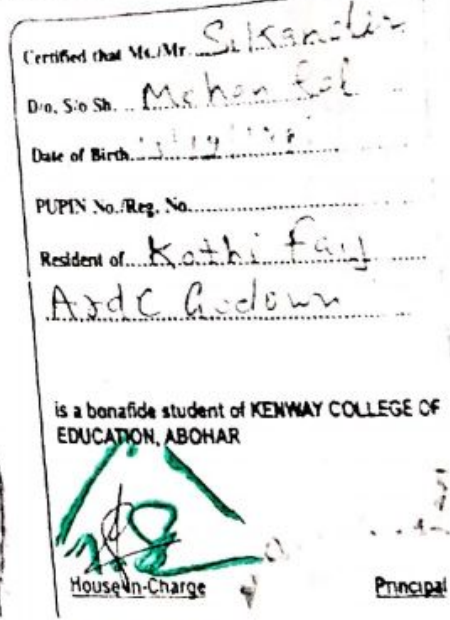 Certified that Ms./Mr. Sikander
D/o, S/o Sh. Mohan Lal
Date of Birth
PUPIN No./Reg. No.
Resident of Kothi Faij
Godown
is a bonafide student of KENWAY COLLEGE OF
EDUCATION, ABOHAR
House In-Charge Principal